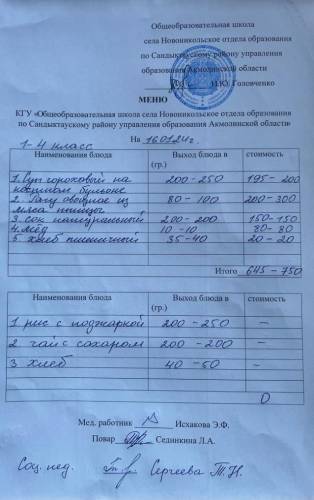 Общеобразовательная школа
села Новоникольское отдела образования
по Сандыктаускому району управления
образования Акмолинской области
Н.Ю. Головченко
МЕНЮ
КГУ «Общеобразовательная школа села Новоникольское отдела образования
по Сандыктаускому району управления образования Акмолинской области»
На 16.01.24г.
1-4 класс
Наименования блюда Выход блюда в (гр.) стоимость
1. Суп гороховый на костном бульоне 200-250 195-200
2. Рагу овощное из мяса птицы 80-100 200-300
3. сок натуральный 200-200 150-150
4. мёд 10-10 80-80
5. хлеб пшеничный 35-40 20-20
Итого 645-750
Наименования блюда Выход блюда в (гр.) стоимость
1 рис с поджаркой 200-250 -
2 чай с сахаром 200-200 -
3 хлеб 40-50 -
0
Мед. работник Исхакова Э.Ф.
Повар Сединкина Л.А.
Соц. пед. Сергеева Т.Н.